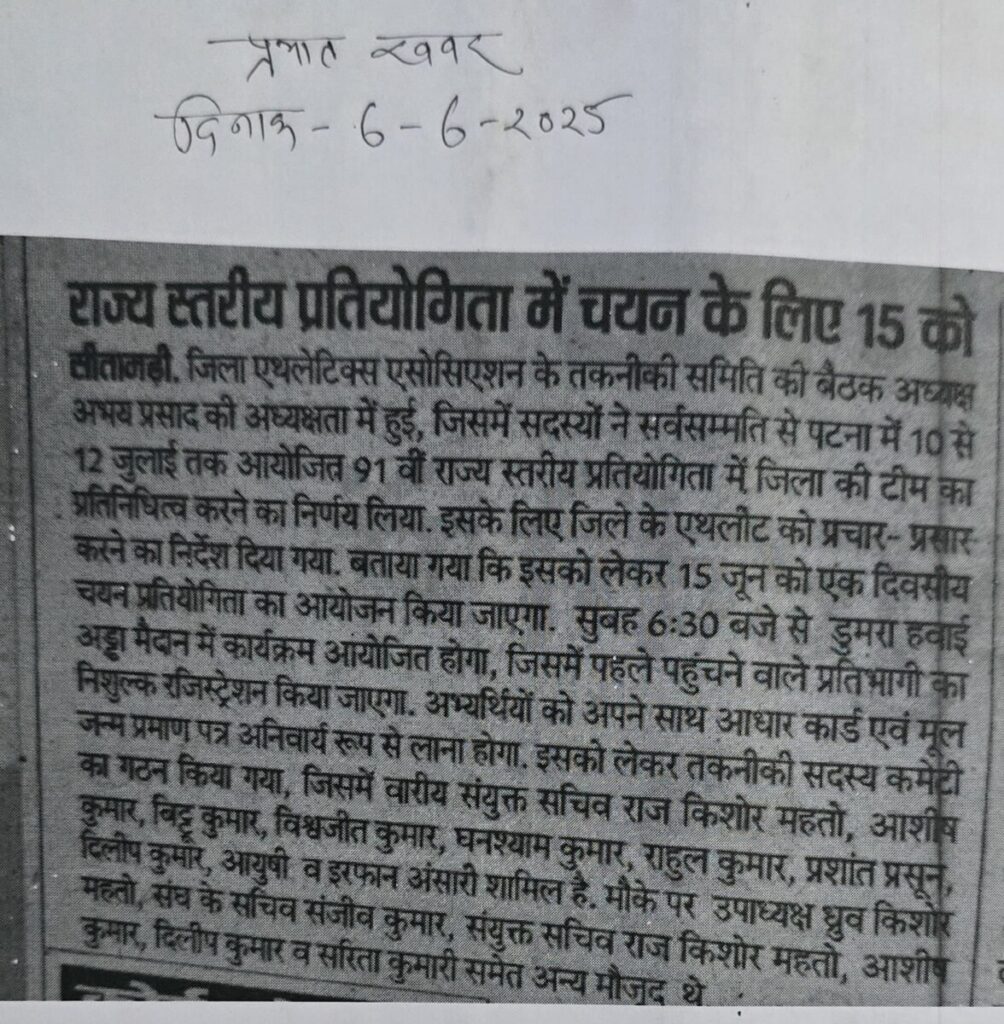 प्रभात खबर
दिनाक - 6 - 6 - २०२५
राज्य स्तरीय प्रतियोगिता में चयन के लिए 15 को
सीतामढ़ी. जिला एथलेटिक्स एसोसिएशन के तकनीकी समिति की बैठक अध्यक्ष
अभय प्रसाद की अध्यक्षता में हुई, जिसमें सदस्यों ने सर्वसम्मति से पटना में 10 से
12 जुलाई तक आयोजित 91 वीं राज्य स्तरीय प्रतियोगिता में जिला की टीम का
प्रतिनिधित्व करने का निर्णय लिया. इसके लिए जिले के एथलीट को प्रचार- प्रसार
करने का निर्देश दिया गया. बताया गया कि इसको लेकर 15 जून को एक दिवसीय
चयन प्रतियोगिता का आयोजन किया जाएगा. सुबह 6:30 बजे से डुमरा हवाई
अड्डा मैदान में कार्यक्रम आयोजित होगा, जिसमें पहले पहुंचने वाले प्रतिभागी का
निशुल्क रजिस्ट्रेशन किया जाएगा. अभ्यर्थियों को अपने साथ आधार कार्ड एवं मूल
जन्म प्रमाण पत्र अनिवार्य रूप से लाना होगा. इसको लेकर तकनीकी सदस्य कमेटी
का गठन किया गया, जिसमें वारीय संयुक्त सचिव राज किशोर महतो, आशीष
कुमार, बिट्टू कुमार, विश्वजीत कुमार, घनश्याम कुमार, राहुल कुमार, प्रशांत प्रसून,
दिलीप कुमार, आयुषी व इरफान अंसारी शामिल है. मौके पर उपाध्यक्ष ध्रुव किशोर
महतो, संघ के सचिव संजीव कुमार, संयुक्त सचिव राज किशोर महतो, आशीष
कुमार, दिलीप कुमार व सरिता कुमारी समेत अन्य मौजूद थे